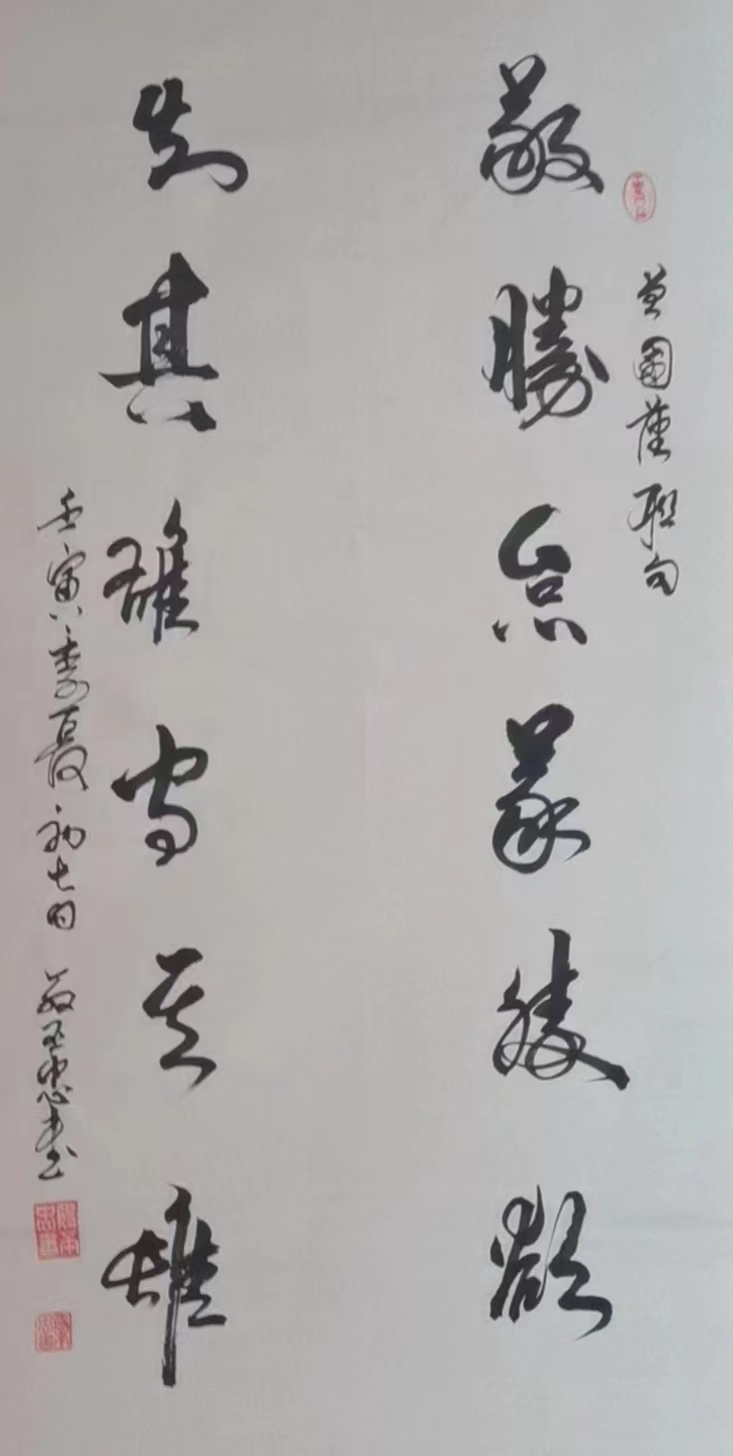 曾國藩聯句
敬勝怠義勝欲
知其雄守其雌
壬寅季夏初七日 忠書